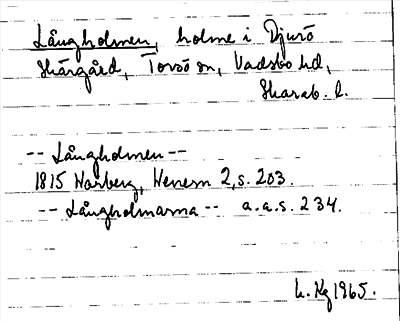 Långholmen, holme i Djurö
skärgård, Torsö sn, Vadsbo hd,
Skarab. l.
-- Långholmen --
1815 Warberg, Wenern 2, s. 203.
-- Långholmarna -- a.a.s. 234.
L. Kg 1965.